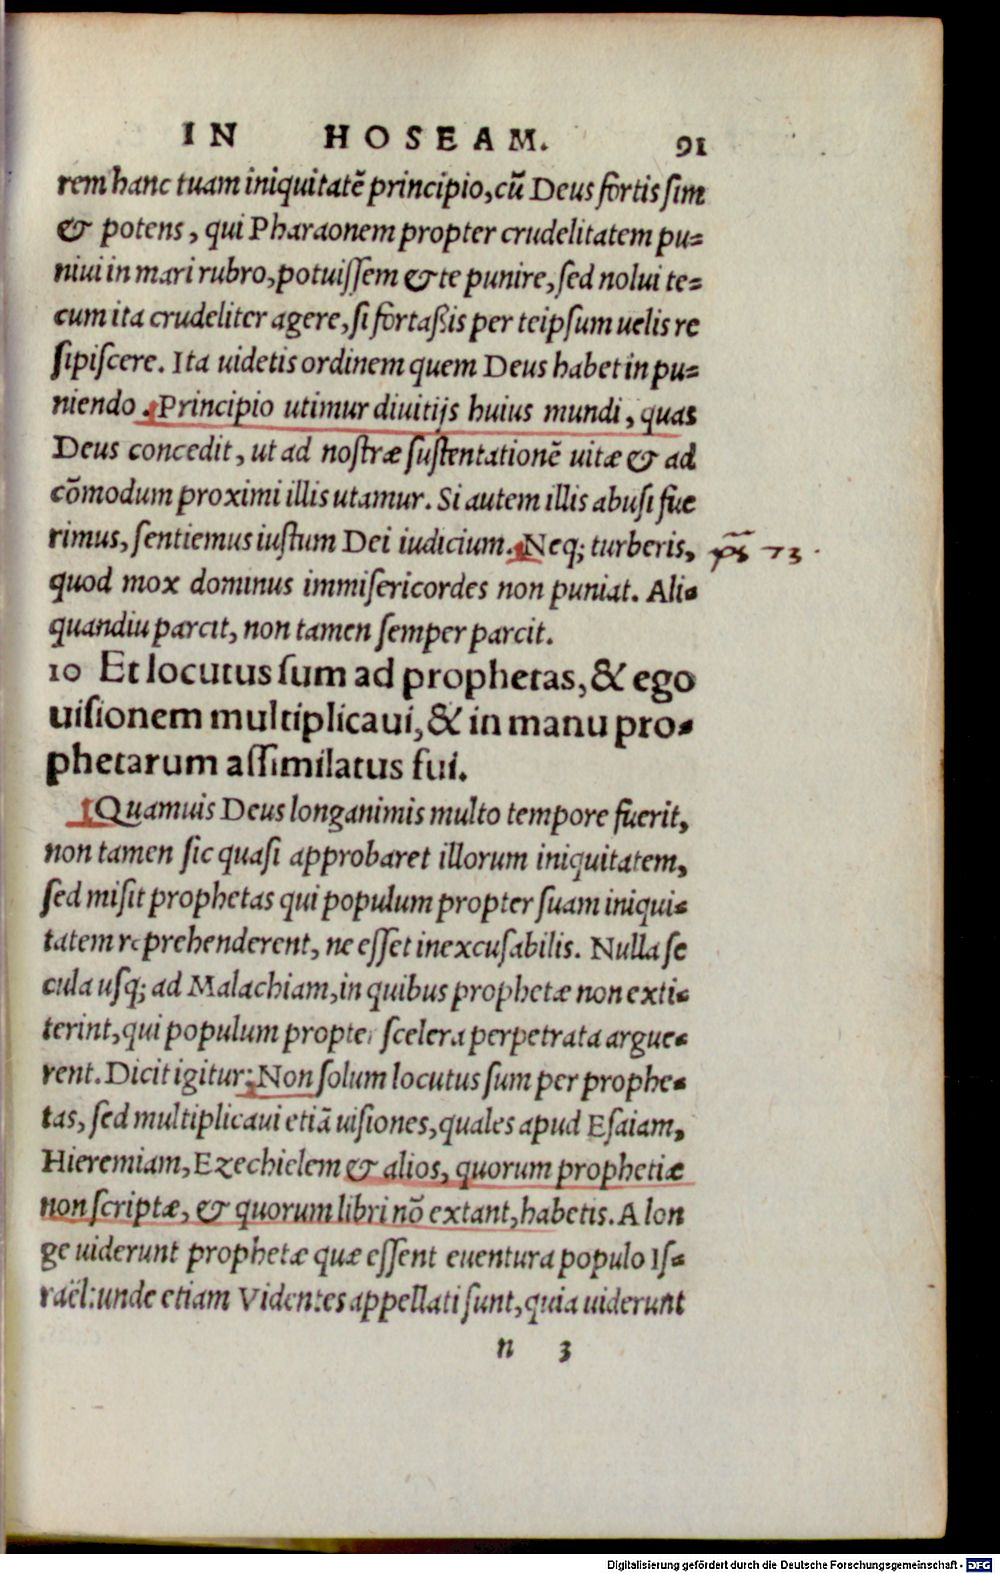 IN HOSEAM. 91
rem hanc tuam iniquitatē principio, cū Deus fortis sim
& potens, qui Pharaonem propter crudelitatem pu=
niui in mari rubro, potuissem & te punire, sed nolui te=
cum ita crudeliter agere, si fortaßis per teipsum uelis re
sipiscere. Ita uidetis ordinem quem Deus habet in pu=
niendo. Principio utimur diuitijs huius mundi, quas
Deus concedit, ut ad nostræ sustentationē uitæ & ad
cōmodum proximi illis utamur. Si autem illis abusi fue
rimus, sentiemus iustum Dei iudicium. Neq; turberis,
ps 73.
quod mox dominus immisericordes non puniat. Ali=
quandiu parcit, non tamen semper parcit.
10 Et locutus sum ad prophetas, & ego
uisionem multiplicaui, & in manu pro=
phetarum assimilatus fui.
Quamuis Deus longanimis multo tempore fuerit,
non tamen sic quasi approbaret illorum iniquitatem,
sed misit prophetas qui populum propter suam iniqui=
tatem reprehenderent, ne esset inexcusabilis. Nulla se
cula usq; ad Malachiam, in quibus prophetæ non exti=
terint, qui populum propter scelera perpetrata argue=
rent. Dicit igitur: Non solum locutus sum per prophe=
tas, sed multiplicaui etiā uisiones, quales apud Esaiam,
Hieremiam, Ezechielem & alios, quorum prophetiæ
non scriptæ, & quorum libri nō extant, habetis. A lon
ge uiderunt prophetæ quæ essent euentura populo Is=
raël: unde etiam Videntes appellati sunt, quia uiderunt
n 3
Digitalisierung gefördert durch die Deutsche Forschungsgemeinschaft - DFG